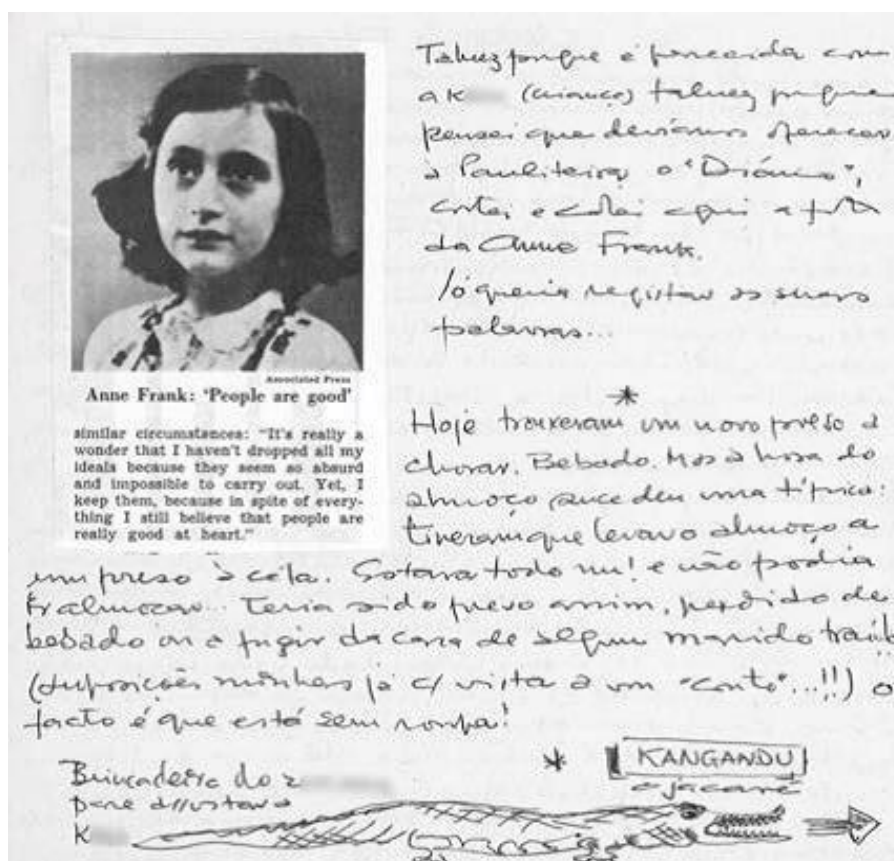 Associated Press
Anne Frank: 'People are good'
similar circumstances: "It's really a
wonder that I haven't dropped all my
ideals because they seem so absurd
and impossible to carry out. Yet, I
keep them, because in spite of every-
thing I still believe that people are
really good at heart."
Talvez porque é parecida com
a K (criança) talvez porque
pensei que devíamos oferecer
à Pauliteira o "Diário",
cortei e colei aqui a foto
da Anne Frank.
Só queria registar as suas
palavras...
*
Hoje trouxeram um novo preso a
chorar. Bebado. Mas à hora do
almoço sucedeu uma típica:
tiveram que levar o almoço a
um preso à cela. Estava todo nu! e não podia
ir almoçar... Teria sido preso assim, perdido de
bebado ou a fugir da casa de algum marido
(suposições minhas já c/ vista a um "conto"...!!) O
facto é que está sem roupa!
*
KANGANDU
o jacaré
Brincadeira do
para assustar o
K